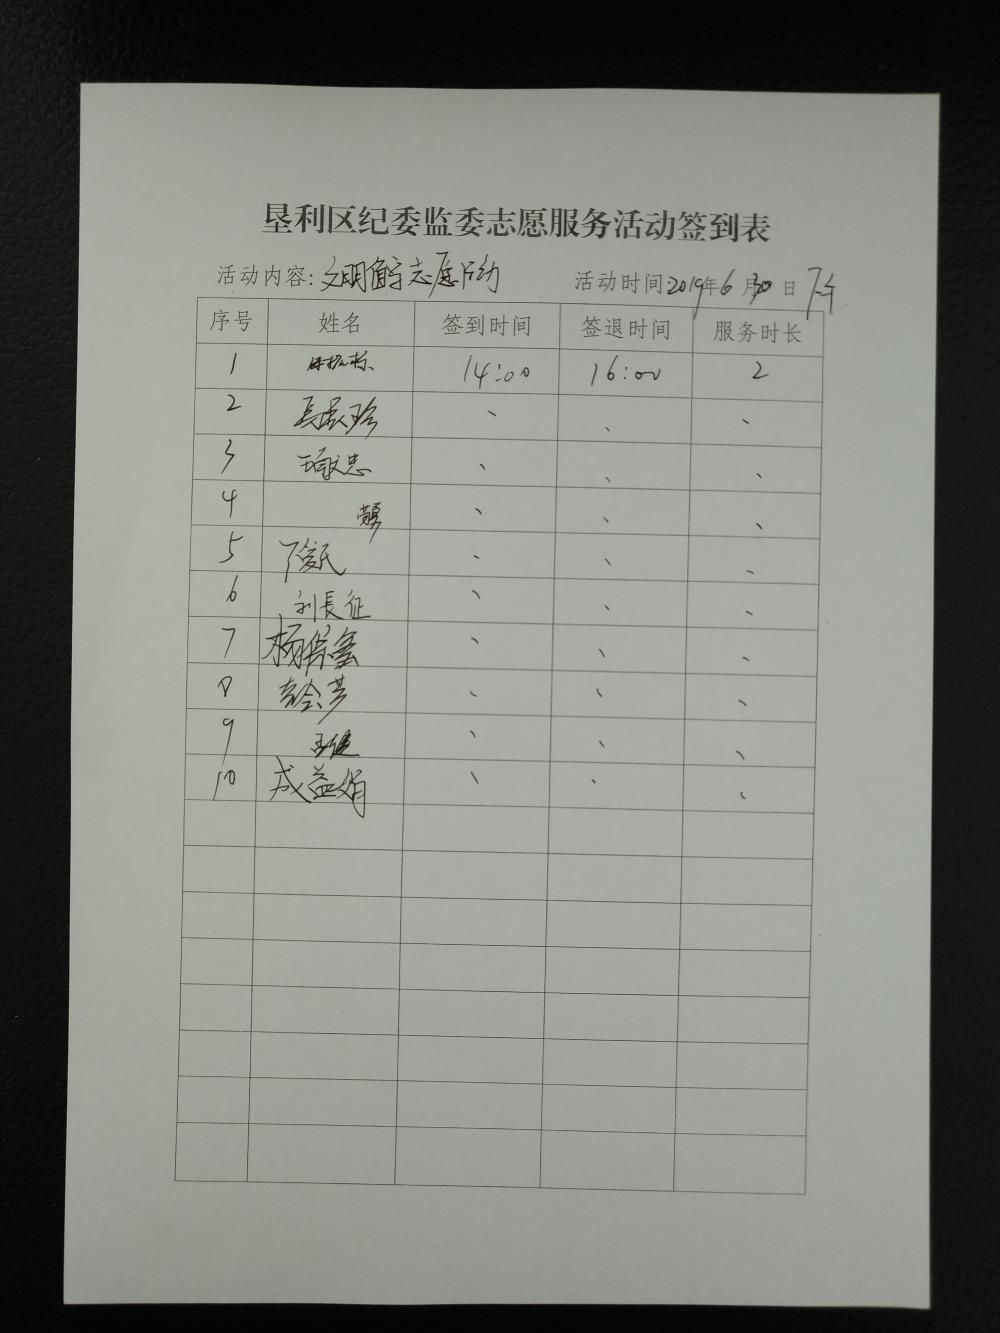 垦利区纪委监委志愿服务活动签到表
活动内容:文明值守志愿活动 活动时间2019年6月30日 下午
序号 姓名 签到时间 签退时间 服务时长
1 14:00 16:00 2
2 、 、 、
3 、 、 、
4 、 、 、
5 丁俊民 、 、 、
6 刘長征 、 、 、
7 杨 鑫 、 、 、
8 、 、 、
9 王健 、 、 、
10 成益娟 、 、 、